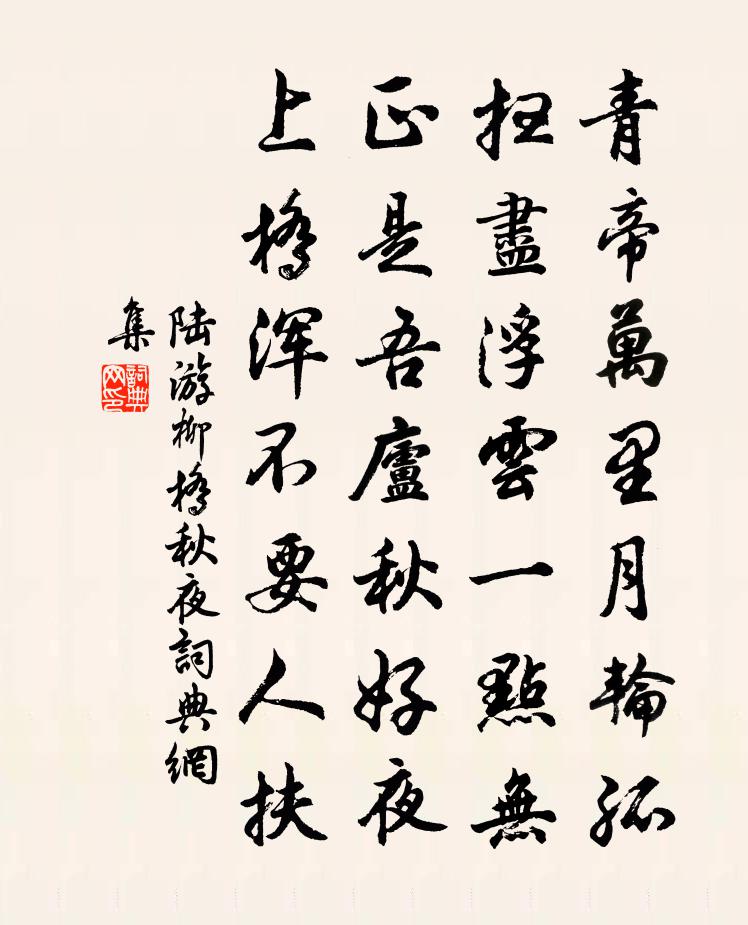 青帝萬里月輪孤
扫盡浮雲一點無
正是吾廬秋好夜
上橋浑不要人扶
陆游柳橋秋夜詞典網
集
詞典网印